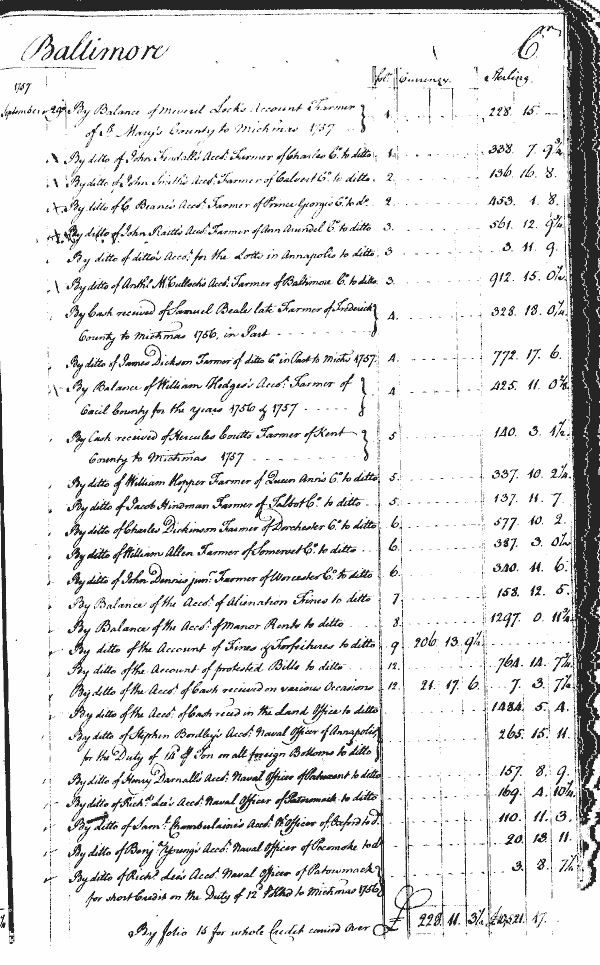 Baltimore Cr.
fol. Currency. Sterling.
1757
September 29 By Balance of Locks Account Farmer
of St. Mary's County to Michmas 1757 } 1. 228. 15. —
By ditto of John Accot. Farmer of Charles Co. to ditto 1. 338. 7. 9¾
By ditto of John Smith's Accot. Farmer of Calvert Co. to ditto 2. 136. 16. 8.
By ditto of C Beane's Accot. Farmer of Prince George's Co. to do. 2. 453. 1. 8.
By ditto of John Raitt's Accot. Farmer of Ann Arundel Co. to ditto 3. 561. 12.
By ditto of ditto's Accot. for the Lotts in Annapolis to ditto 3. 3. 11. 9.
By ditto of Anthy. McCulloch's Accot. Farmer of Baltimore Co. to ditto 3. 912. 15.
By Cash received of Samuel Beale late Farmer of Frederick
County to Michmas 1756, in Part } 4. 328. 18.
By ditto of James Dickson Farmer of ditto Co. in Part to Michs 1757 4. 772. 17. 6.
By Balance of William Hedges's Accot. Farmer of
Cecil County for the years 1756 & 1757 } 4 425. 11.
By Cash received of Hercules Coutts Farmer of Kent
County to Michmas 1757 } 5 140. 3.
By ditto of William Hopper Farmer of Queen Ann's Co. to ditto 5. 337. 10.
By ditto of Jacob Hindman Farmer of Talbot Co. to ditto 5. 137. 11. 7.
By ditto of Charles Dickinson Farmer of Dorchester Co. to ditto 6. 577. 10. 2.
By ditto of William Allen Farmer of Somerset Co. to ditto 6. 387. 3.
By ditto of John Dennis junr. Farmer of Worcester Co. to ditto 6. 340. 11. 6.
By Balance of the Accot. of Alienation Fines to ditto 7 158. 12. 5.
By Balance of the Accot. of Manor Rents to ditto 8 1297. 0.
By ditto of the Account of Fines & Forfeitures to ditto 9 206. 13.
By ditto of the Account of protested Bills to ditto 12. 764. 14.
By ditto of the Accot. of Cash received on various Occasions 12 21. 17. 6. 7. 3.
By ditto of the Accot. of Cash reced in the Land Office to ditto 1484. 5. 4.
By ditto of Stephen Bordley's Accot. Naval Officer of Annapolis
for the Duty of 14d. Ton on all foreign Bottoms to ditto } 265. 15. 11.
By ditto of Henry Darnall's Accot. Naval Officer of Patuxent to ditto 157. 8. 9.
By ditto of Richd. Lee's Accot. Naval Officer of Patowmack to ditto 169. 4.
By ditto of Saml. Chamberlaine's Accot. Nl. Officer of Oxford to do. 110. 11. 3.
By ditto of Benj. Young's Accot. Naval Officer of Pocomoke to do 20. 13. 11.
By ditto of Richd. Lee's Accot. Naval Officer of Patowmack
for short Credit on the Duty of 12d. to Michmas 1756 } 3. 8.
By folio 15 for whole Credit carried over £ 228. 11. 17.